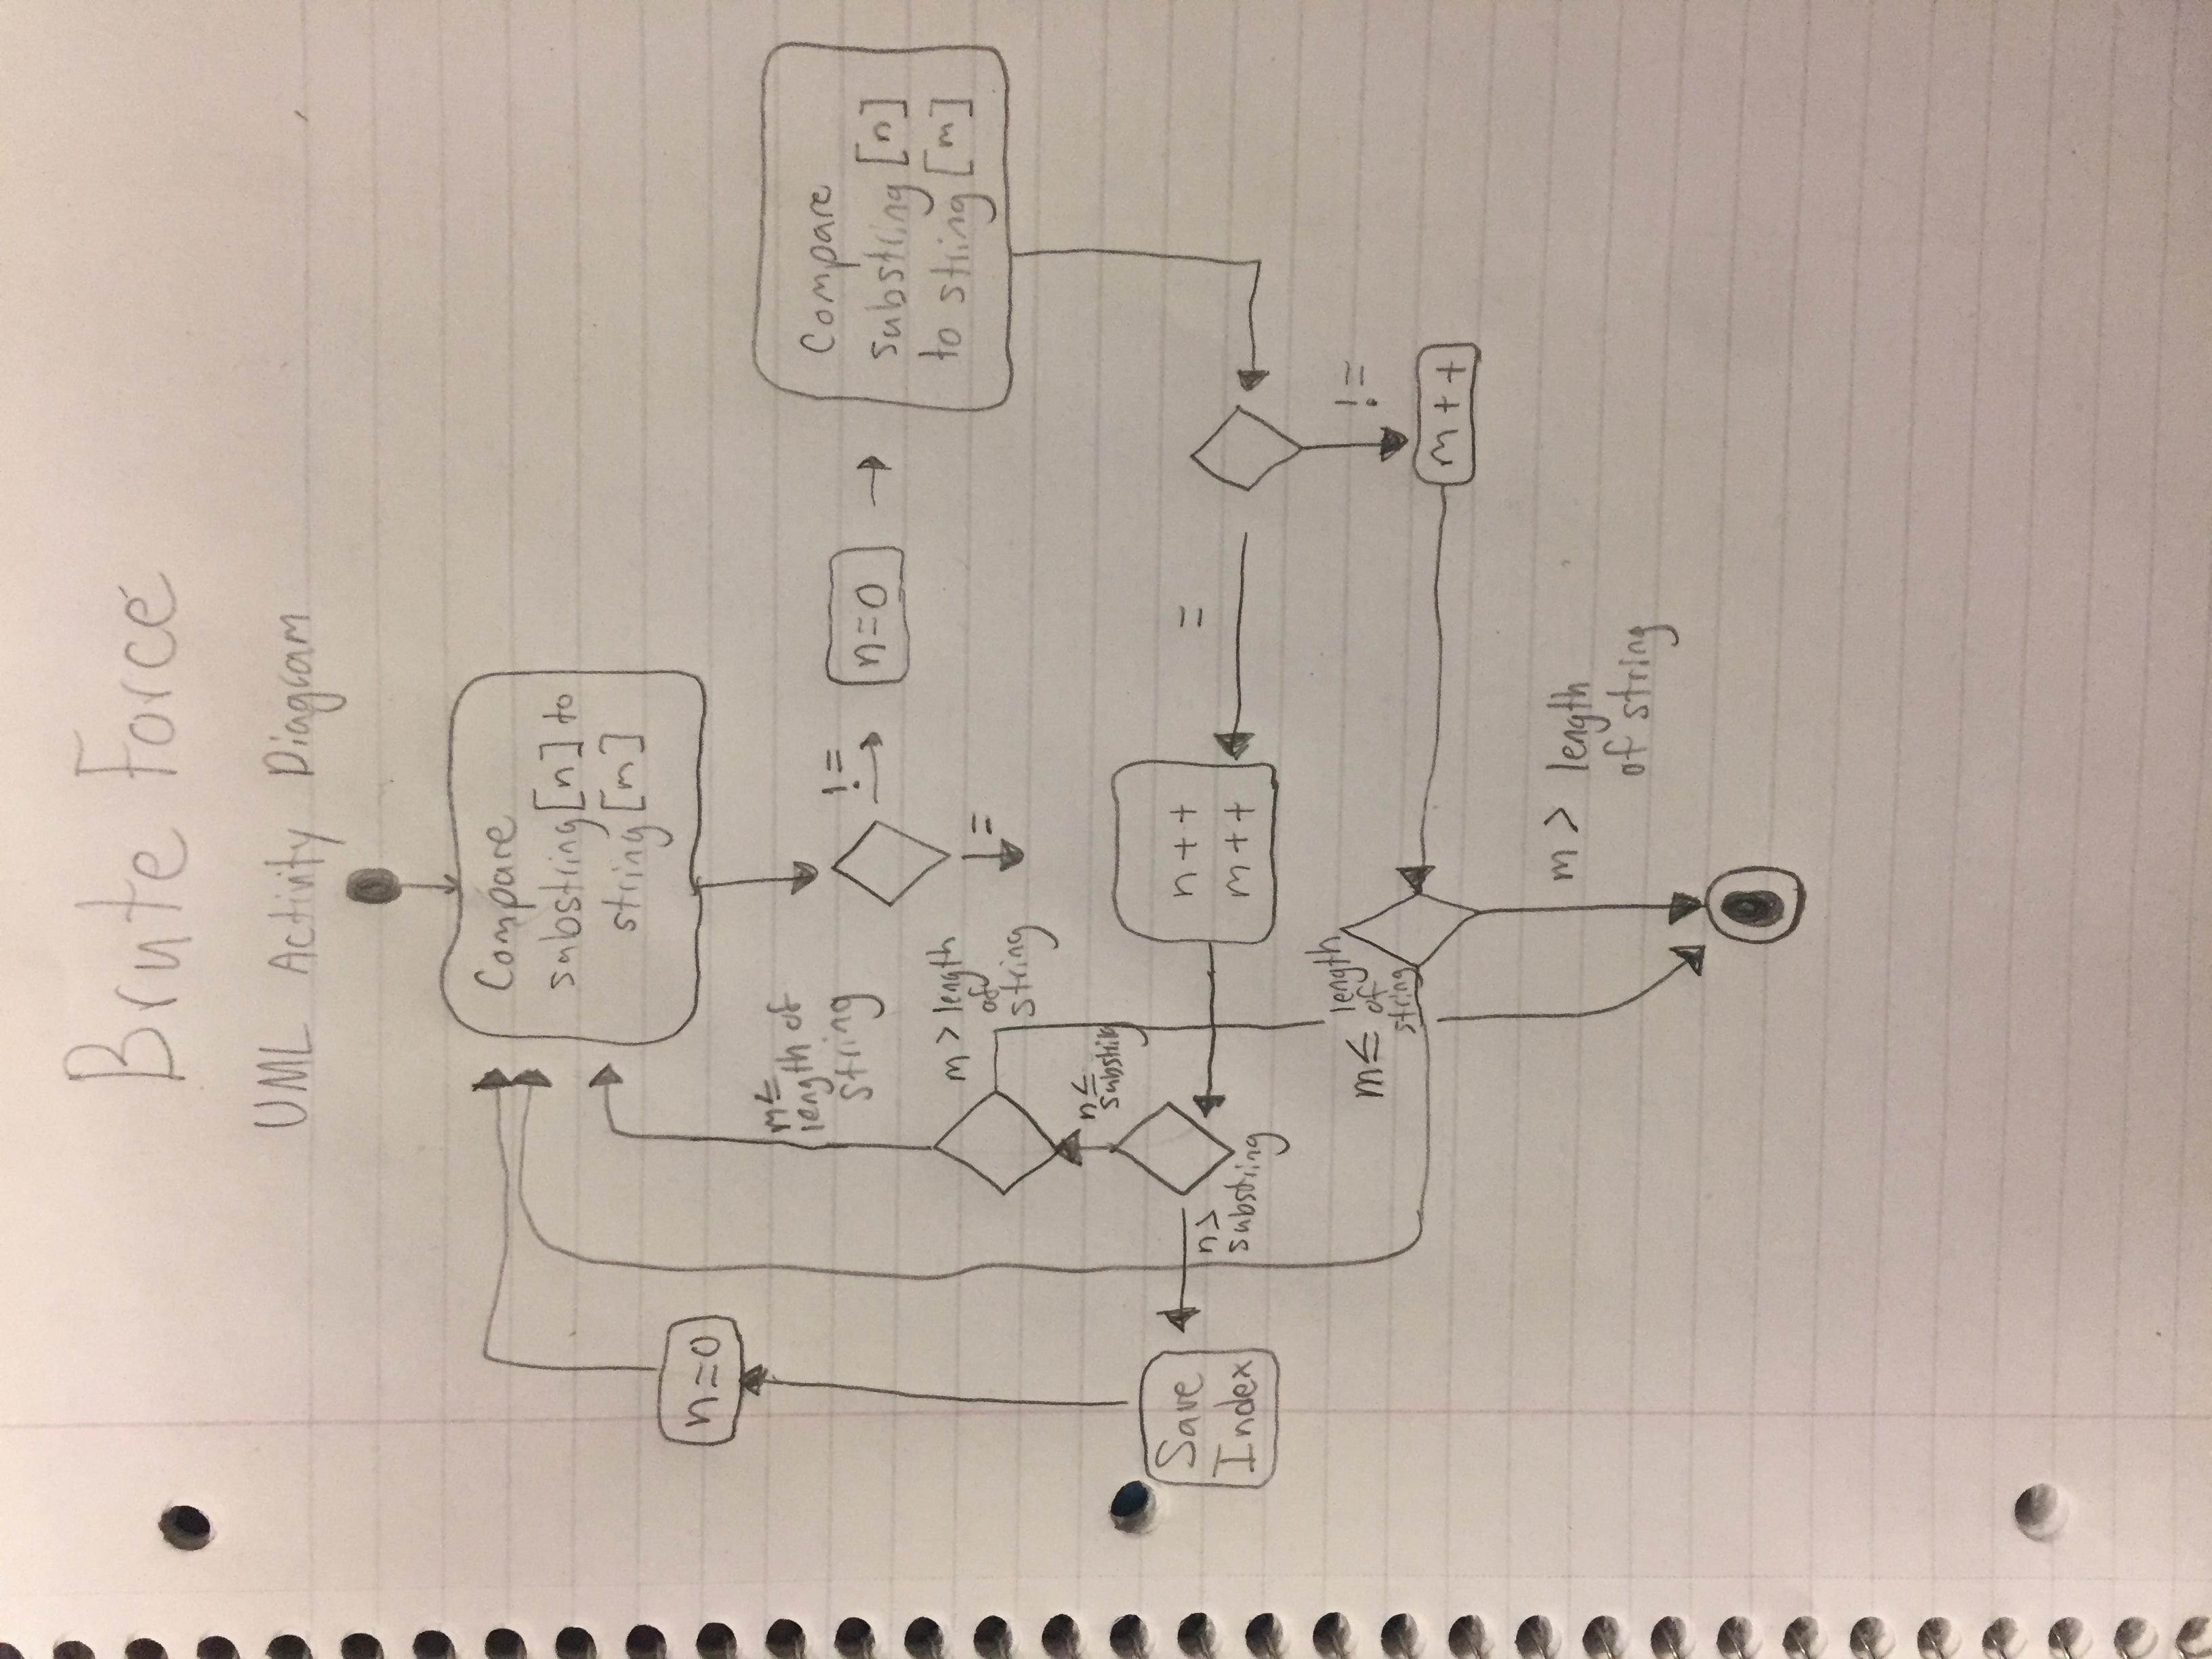 Brute Force
UML Activity Diagram
Compare
substring[n] to
string[m]
n=0
m≤
length of
string
!=
n=0
Compare
substring[n]
to string[m]
=
m > length
of
string
n≤
substring
Save
Index
n>
substring
n++
m++
=
!=
m≤ length
of
string
m++
m > length
of string